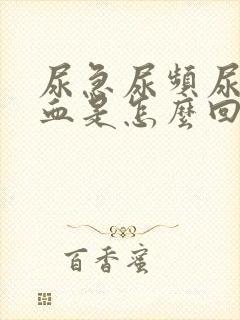 尿急尿頻尿
血是怎麼回
百香蜜